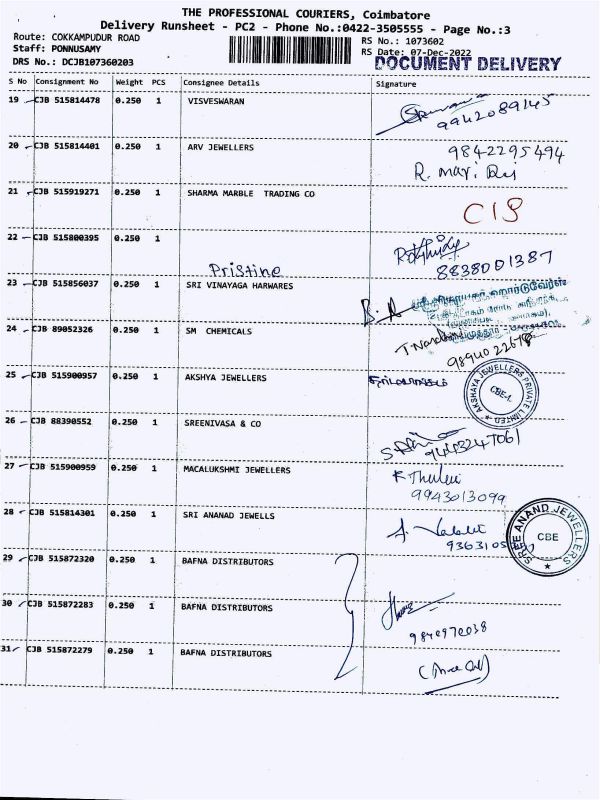 THE PROFESSIONAL COURIERS, Coimbatore
Delivery Runsheet - PC2 - Phone No.:0422-3505555 - Page No.:3
Route: COKKAMPUDUR ROAD RS No.: 1073602
Staff: PONNUSAMY RS Date: 07-Dec-2022
DRS No.: DCJB107360203 DOCUMENT DELIVERY
S No Consignment No Weight PCS Consignee Details Signature
19 CJB 515814478 0.250 1 VISVESWARAN
9942089145
20 CJB 515814401 0.250 1 ARV JEWELLERS 9842295494
R. Mari
21 CJB 515919271 0.250 1 SHARMA MARBLE TRADING CO
22 CJB 515800395 0.250 1
Pristine 8838001387
23 CJB 515856037 0.250 1 SRI VINAYAGA HARWARES
24 CJB 89052326 0.250 1 SM CHEMICALS
25 CJB 515900957 0.250 1 AKSHYA JEWELLERS
AKSHAYA JEWELLERS PRIVATE LIMITED
CBE-1.
26 CJB 88390552 0.250 1 SREENIVASA & CO
9443247061
27 CJB 515900959 0.250 1 MACALUKSHMI JEWELLERS
9943013099
28 CJB 515814301 0.250 1 SRI ANANAD JEWELLS
SREE ANAND JEWELLERS
CBE
29 CJB 515872320 0.250 1 BAFNA DISTRIBUTORS
30 CJB 515872283 0.250 1 BAFNA DISTRIBUTORS
31 CJB 515872279 0.250 1 BAFNA DISTRIBUTORS